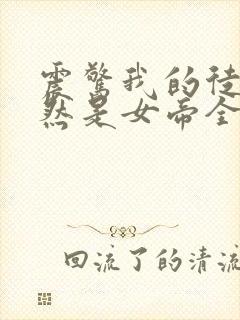 震惊我的徒
然是女帝全
回流了的清流